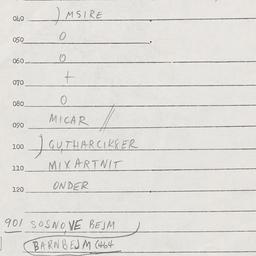 040 ) MSIRE
050 O
060 O
070 +
080 O
090 MICAR //
100 ) GUTHARCIKSER
110 MIXARTNIT
120 ONDER
901 SOSNOVE BEJM
BARNBEJM 6464